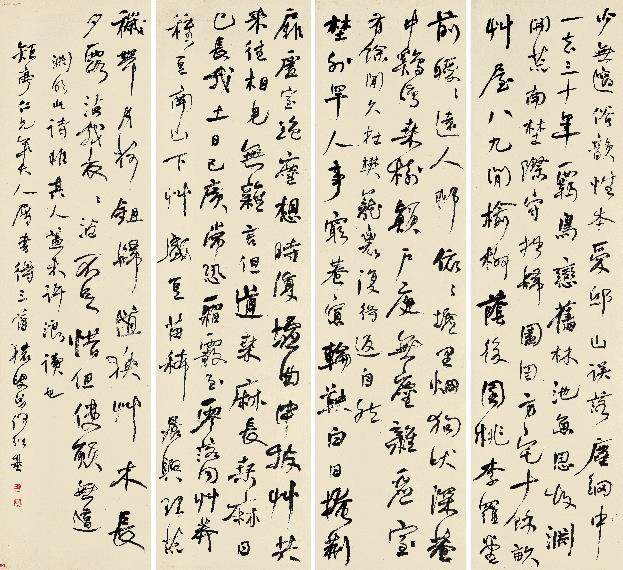 少無適俗韻性本愛邱山誤落塵網中
一去三十年羈鳥戀舊林池魚思故淵
開荒南埜際守拙歸園田方宅十餘畝
艸屋八九間榆柳蔭後園桃李羅堂
前曖〻遠人邨依〻墟里烟狗吠深巷
中鷄鳴桑樹顛戶庭無塵雜虛室
有餘閒久在樊籠裏復得返自然
埜外罕人事窮巷寡輪鞅白日掩荆
扉虛室絕塵想時復墟曲中披艸共
來往相見無雜言但道桑麻長桑麻日
已長我土日已廣常恐霜霰至零落同艸莽
種豆南山下艸盛豆苗稀晨興理荒
穢帶月荷鉏歸道狹艸木長
夕露沾我衣〻沾不足惜但使願無違
淵明此詩惟其人蓋未許浪讀也
亭仁兄年大人屬書得三首猨叟弟何紹基